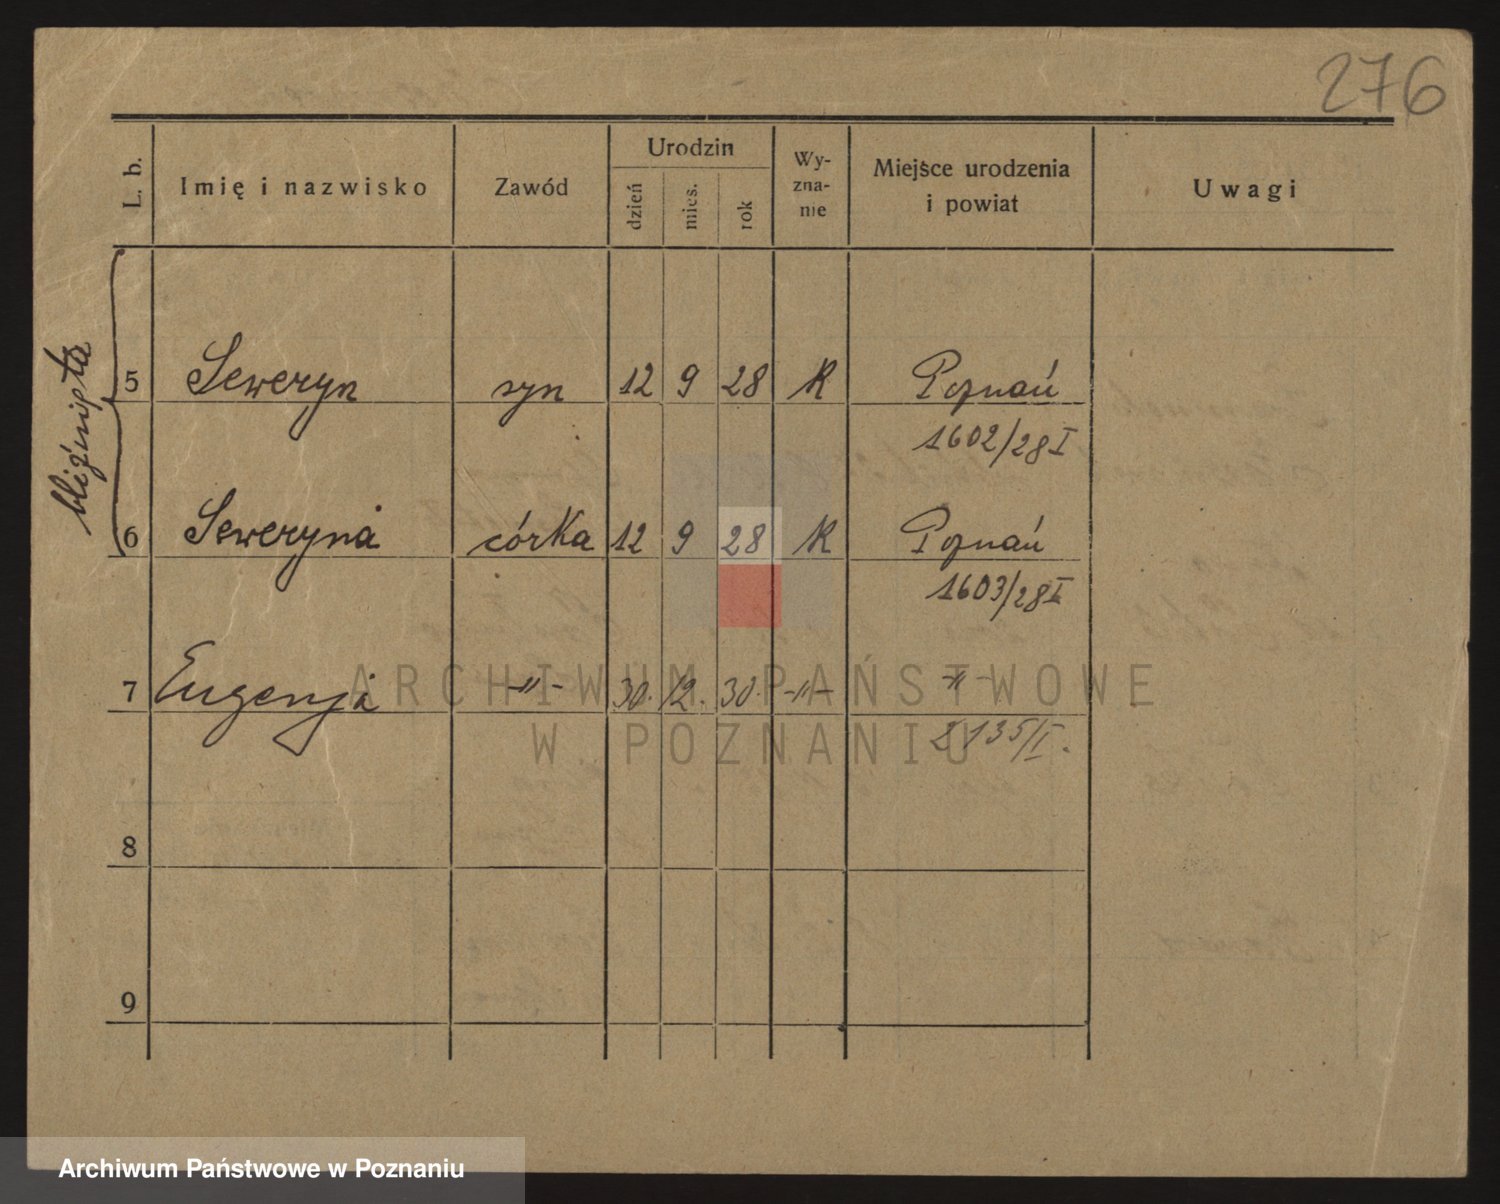 276
L. b.
Imię i nazwisko
Zawód
Urodzin
dzień
mies.
rok
Wy-
zna-
nie
Miejsce urodzenia
i powiat
Uwagi
bliźnięta
5 Seweryn syn 12 9 28 K Poznań
1602/28 I
6 Seweryna córka 12 9 28 K Poznań
1603/28 I
7 Eugenja -"- 30. 12. 30. -"- -"-
2135/I.
8
9
ARCHIWUM PAŃSTWOWE
W POZNANIU
Archiwum Państwowe w Poznaniu